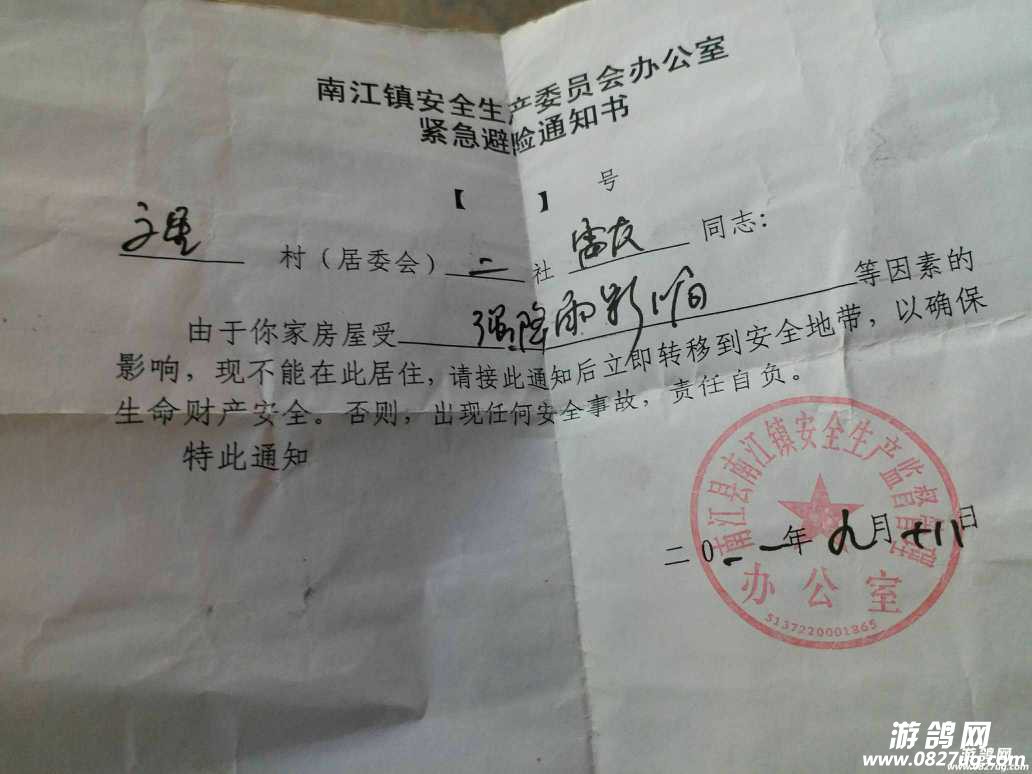 南江镇安全生产委员会办公室
紧急避险通知书
【 】 号
村（居委会）二社雷友同志：
由于你家房屋受强降雨影响等因素的
影响，现不能在此居住，请接此通知后立即转移到安全地带，以确保
生命财产安全。否则，出现任何安全事故，责任自负。
特此通知
南江县南江镇安全生产监督管理
二0一一年九月十八日
办公室
5137220001865
游鸽网
www.0827ug.com
游鸽网
www.0827ug.com